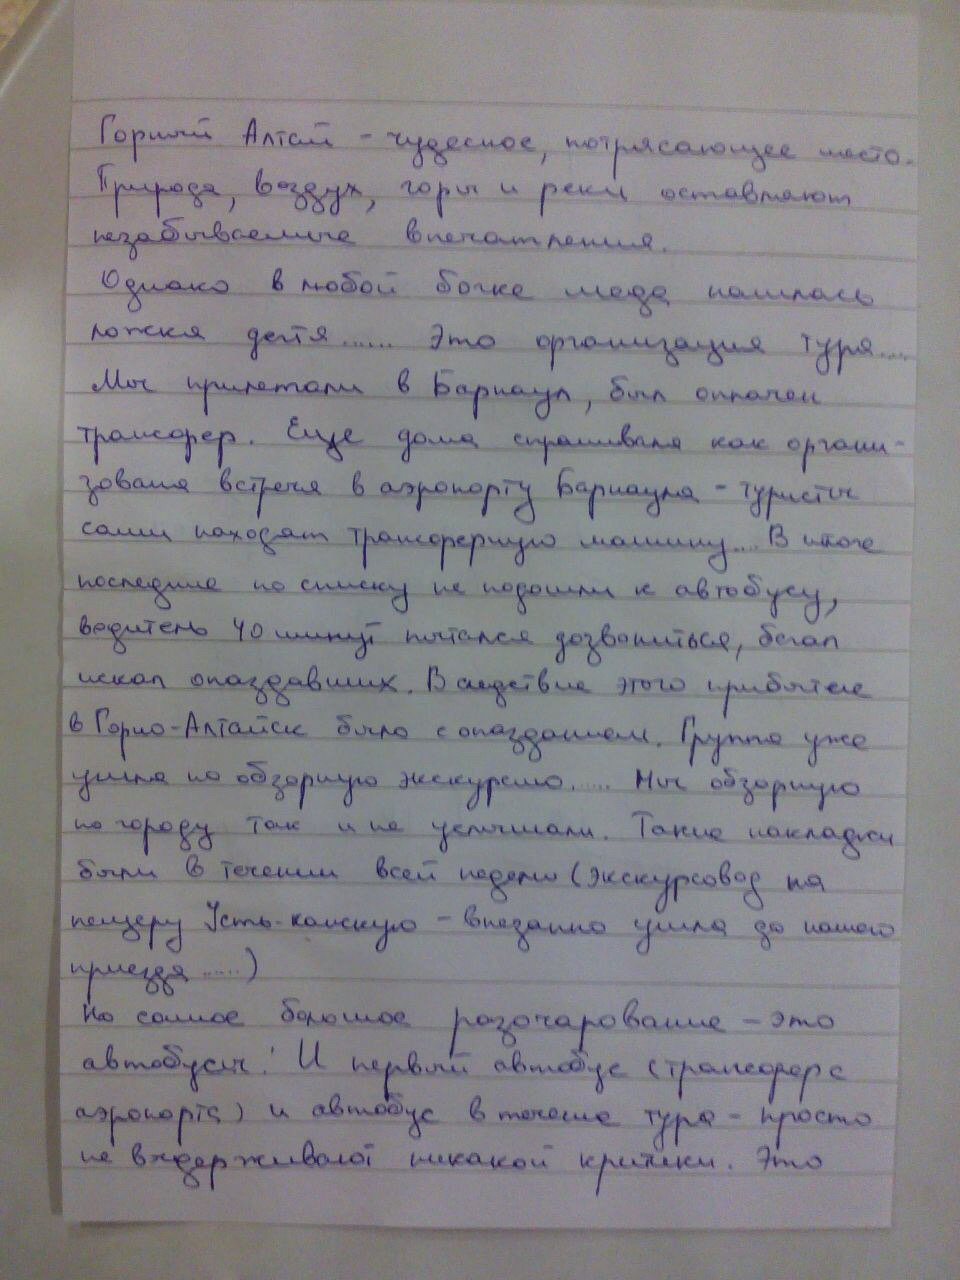 Горный Алтай - чудесное, потрясающее место.
Природа, воздух, горы и реки оставляют
незабываемые впечатления.
Однако в любой бочке меда нашлась
ложка дегтя...... Это организация тура.....
Мы прилетали в Барнаул, был оплачен
трансфер. Еще дома спрашивала как органи-
зована встреча в аэропорту Барнаула - туристы
сами находят трансферную машину.... В итоге
последние по списку не подошли к автобусу,
водитель 40 минут пытался дозвониться, бегал
искал опаздавших. В следствие этого прибытие
в Горно-Алтайск было с опазданием. Группа уже
ушла на обзорную экскурсию..... Мы обзорную
по городу так и не услышали. Такие накладки
были в течении всей недели (экскурсовод на
пещеру Усть-канскую - внезапно ушла до нашего
приезда......)
Но самое большое разочарование - это
автобусы! И первый автобус (трансфер с
аэропорта) и автобус в течение тура - просто
не выдерживают никакой критики. Это